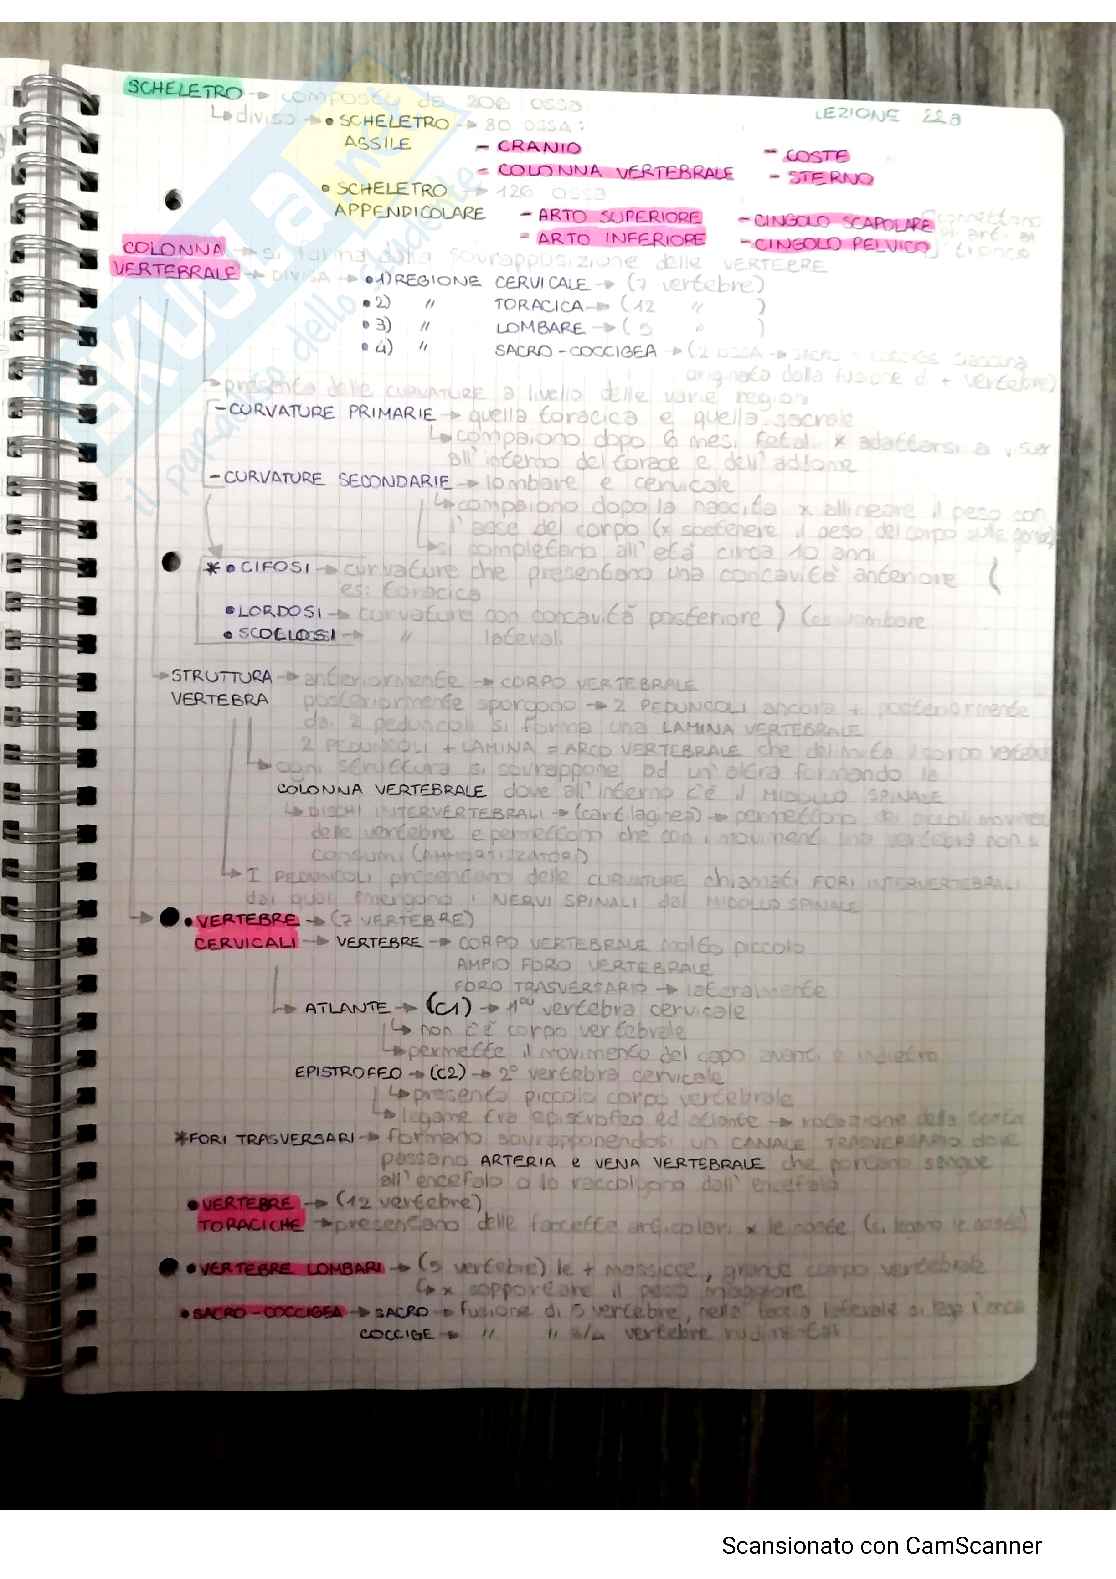 SCHELETRO → composto da 206 ossa
LEZIONE 22B
↳ diviso → • SCHELETRO → 80 OSSA:
ASSILE - CRANIO - COSTE
- COLONNA VERTEBRALE - STERNO
• SCHELETRO → 126 ossa
APPENDICOLARE - ARTO SUPERIORE - CINGOLO SCAPOLARE
- ARTO INFERIORE - CINGOLO PELVICO
COLONNA → si forma dalla sovrapposizione delle VERTEBRE
VERTEBRALE → DIVISA → • 1) REGIONE CERVICALE → (7 vertebre)
• 2) " TORACICA → (12 " )
• 3) " LOMBARE → (5 " )
• 4) " SACRO-COCCIGEA → (2 OSSA →
originato dalla fusione di + vertebre)
↳ presenta delle CURVATURE a livello delle varie regioni
- CURVATURE PRIMARIE → quella toracica e quella sacrale
↳ compaiono dopo 6 mesi fetali x adattarsi a
all'interno del torace e dell'addome
- CURVATURE SECONDARIE → lombare e cervicale
↳ compaiono dopo la nascita x allineare il peso con
l'asse del corpo (x sostenere il peso del corpo sulle gambe)
↳ si completano all'età circa 10 anni
* • CIFOSI → curvature che presentano una concavità anteriore (
es: toracica
• LORDOSI → curvature con concavità posteriore ) (es lombare
• SCOLIOSI → " laterali
STRUTTURA → anteriormente → CORPO VERTEBRALE
VERTEBRA posteriormente sporgono → 2 PEDUNCOLI ancora + posteriormente
dai 2 peduncoli si forma una LAMINA VERTEBRALE
2 PEDUNCOLI + LAMINA = ARCO VERTEBRALE che delimita il corpo
↳ ogni struttura si sovrappone ad un'altra formando la
COLONNA VERTEBRALE dove all'interno c'è il MIDOLLO SPINALE
↳ DISCHI INTERVERTEBRALI → (cartilaginei) → permettono dei piccoli movimenti
delle vertebre e permettono che con i movimenti una vertebra non si
consumi (AMMORTIZZANO)
↳ I PEDUNCOLI presentano delle CURVATURE chiamati FORI INTERVERTEBRALI
dai quali emergono i NERVI SPINALI dal MIDOLLO SPINALE
• VERTEBRE → (7 VERTEBRE)
CERVICALI → VERTEBRE → CORPO VERTEBRALE molto piccolo
AMPIO FORO VERTEBRALE
FORO TRASVERSARIO → lateralmente
↳ ATLANTE → (C1) → 1° vertebra cervicale
↳ non c'è corpo vertebrale
↳ permette il movimento del capo avanti e indietro
EPISTROFEO → (C2) → 2° vertebra cervicale
↳ presenta piccolo corpo vertebrale
↳ legame tra epistrofeo ed atlante → rotazione della testa
* FORI TRASVERSARI → formano sovrapponendosi un CANALE TRASVERSARIO dove
passano ARTERIA e VENA VERTEBRALE che portano sangue
all'encefalo o lo raccolgono dall'encefalo
• VERTEBRE → (12 vertebre)
TORACICHE → presentano delle faccette articolari x le coste (si legano le coste)
• VERTEBRE LOMBARI → (5 vertebre) le + massicce, grande corpo vertebrale
↳ x sopportare il peso maggiore
• SACRO-COCCIGEA → SACRO → fusione di 5 vertebre, nella faccia laterale si lega l'anca
COCCIGE → " " 3/4 vertebre rudimentali
SKUOLA.net
il paradiso dello studente
Scansionato con CamScanner